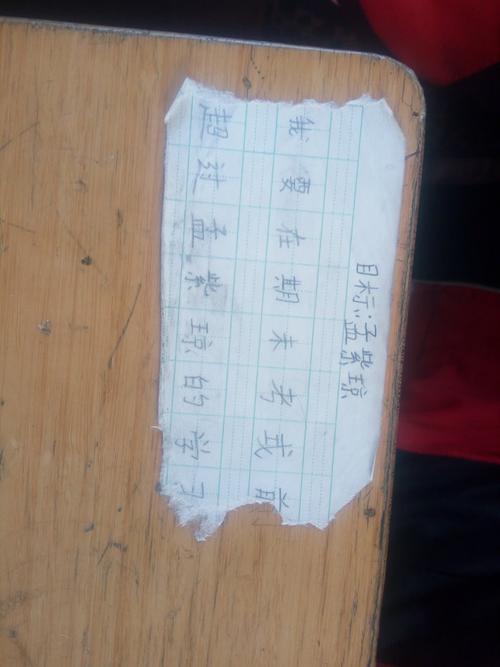 目标:孟紫琼
我要在期末考试前
超过孟紫琼的学习